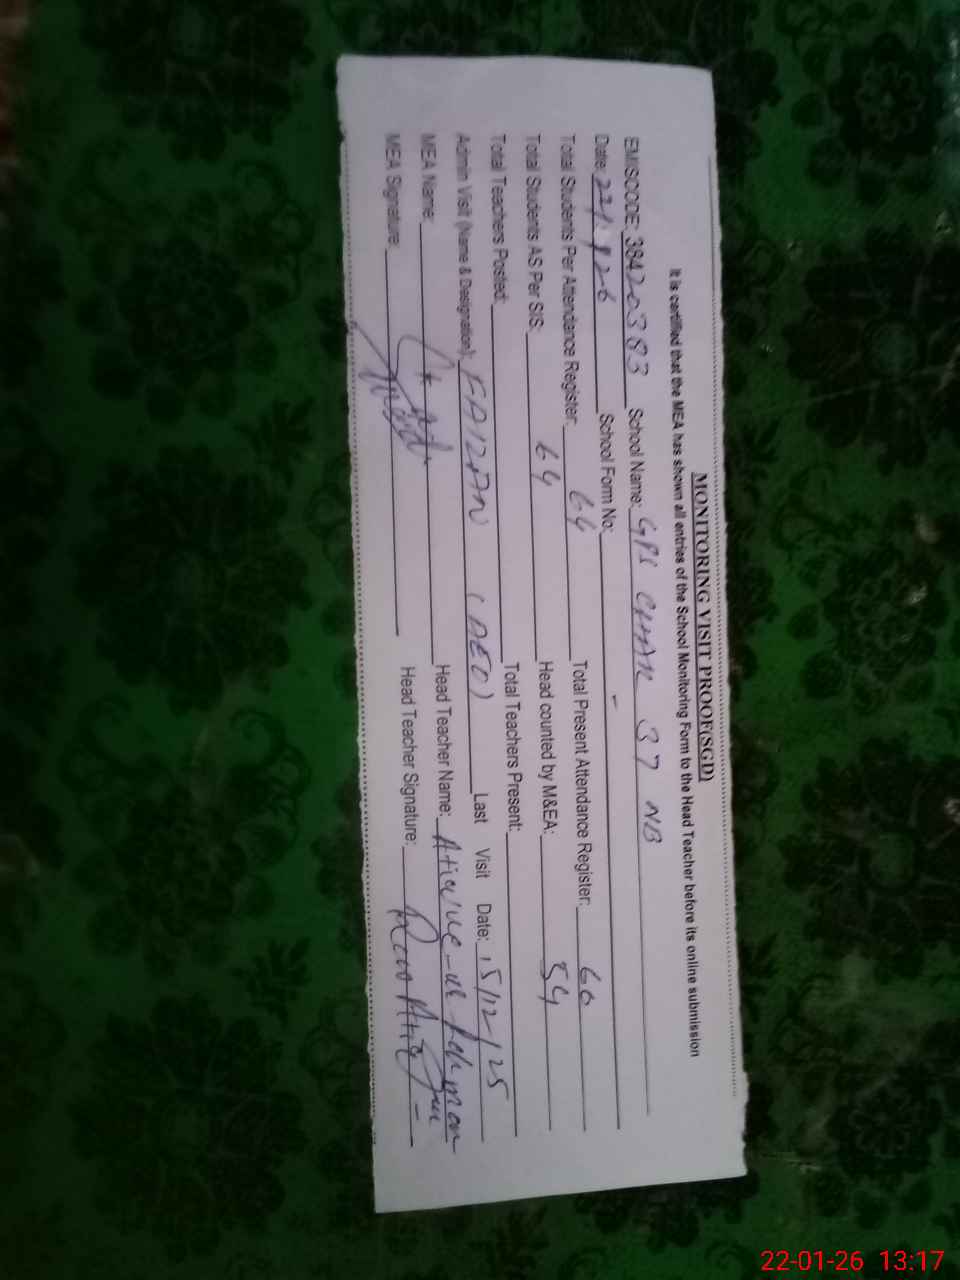 MONITORING VISIT PROOF(SGD)
It is certified that the MEA has shown all entries of the School Monitoring Form to the Head Teacher before its online submission
EMISCODE: 38420383 School Name: GPS CHAK 37 NB
Date: 22/1/26 School Form No: -
Total Students Per Attendance Register: 64 Total Present Attendance Register: 60
Total Students AS Per SIS: 64 Head counted by M&EA: 54
Total Teachers Posted: Total Teachers Present:
Admin Visit (Name & Designation): FAIZAN (AEO) Last Visit Date: 15/12/25
MEA Name: Head Teacher Name: Rehman
MEA Signature: Head Teacher Signature:
22-01-26 13:17